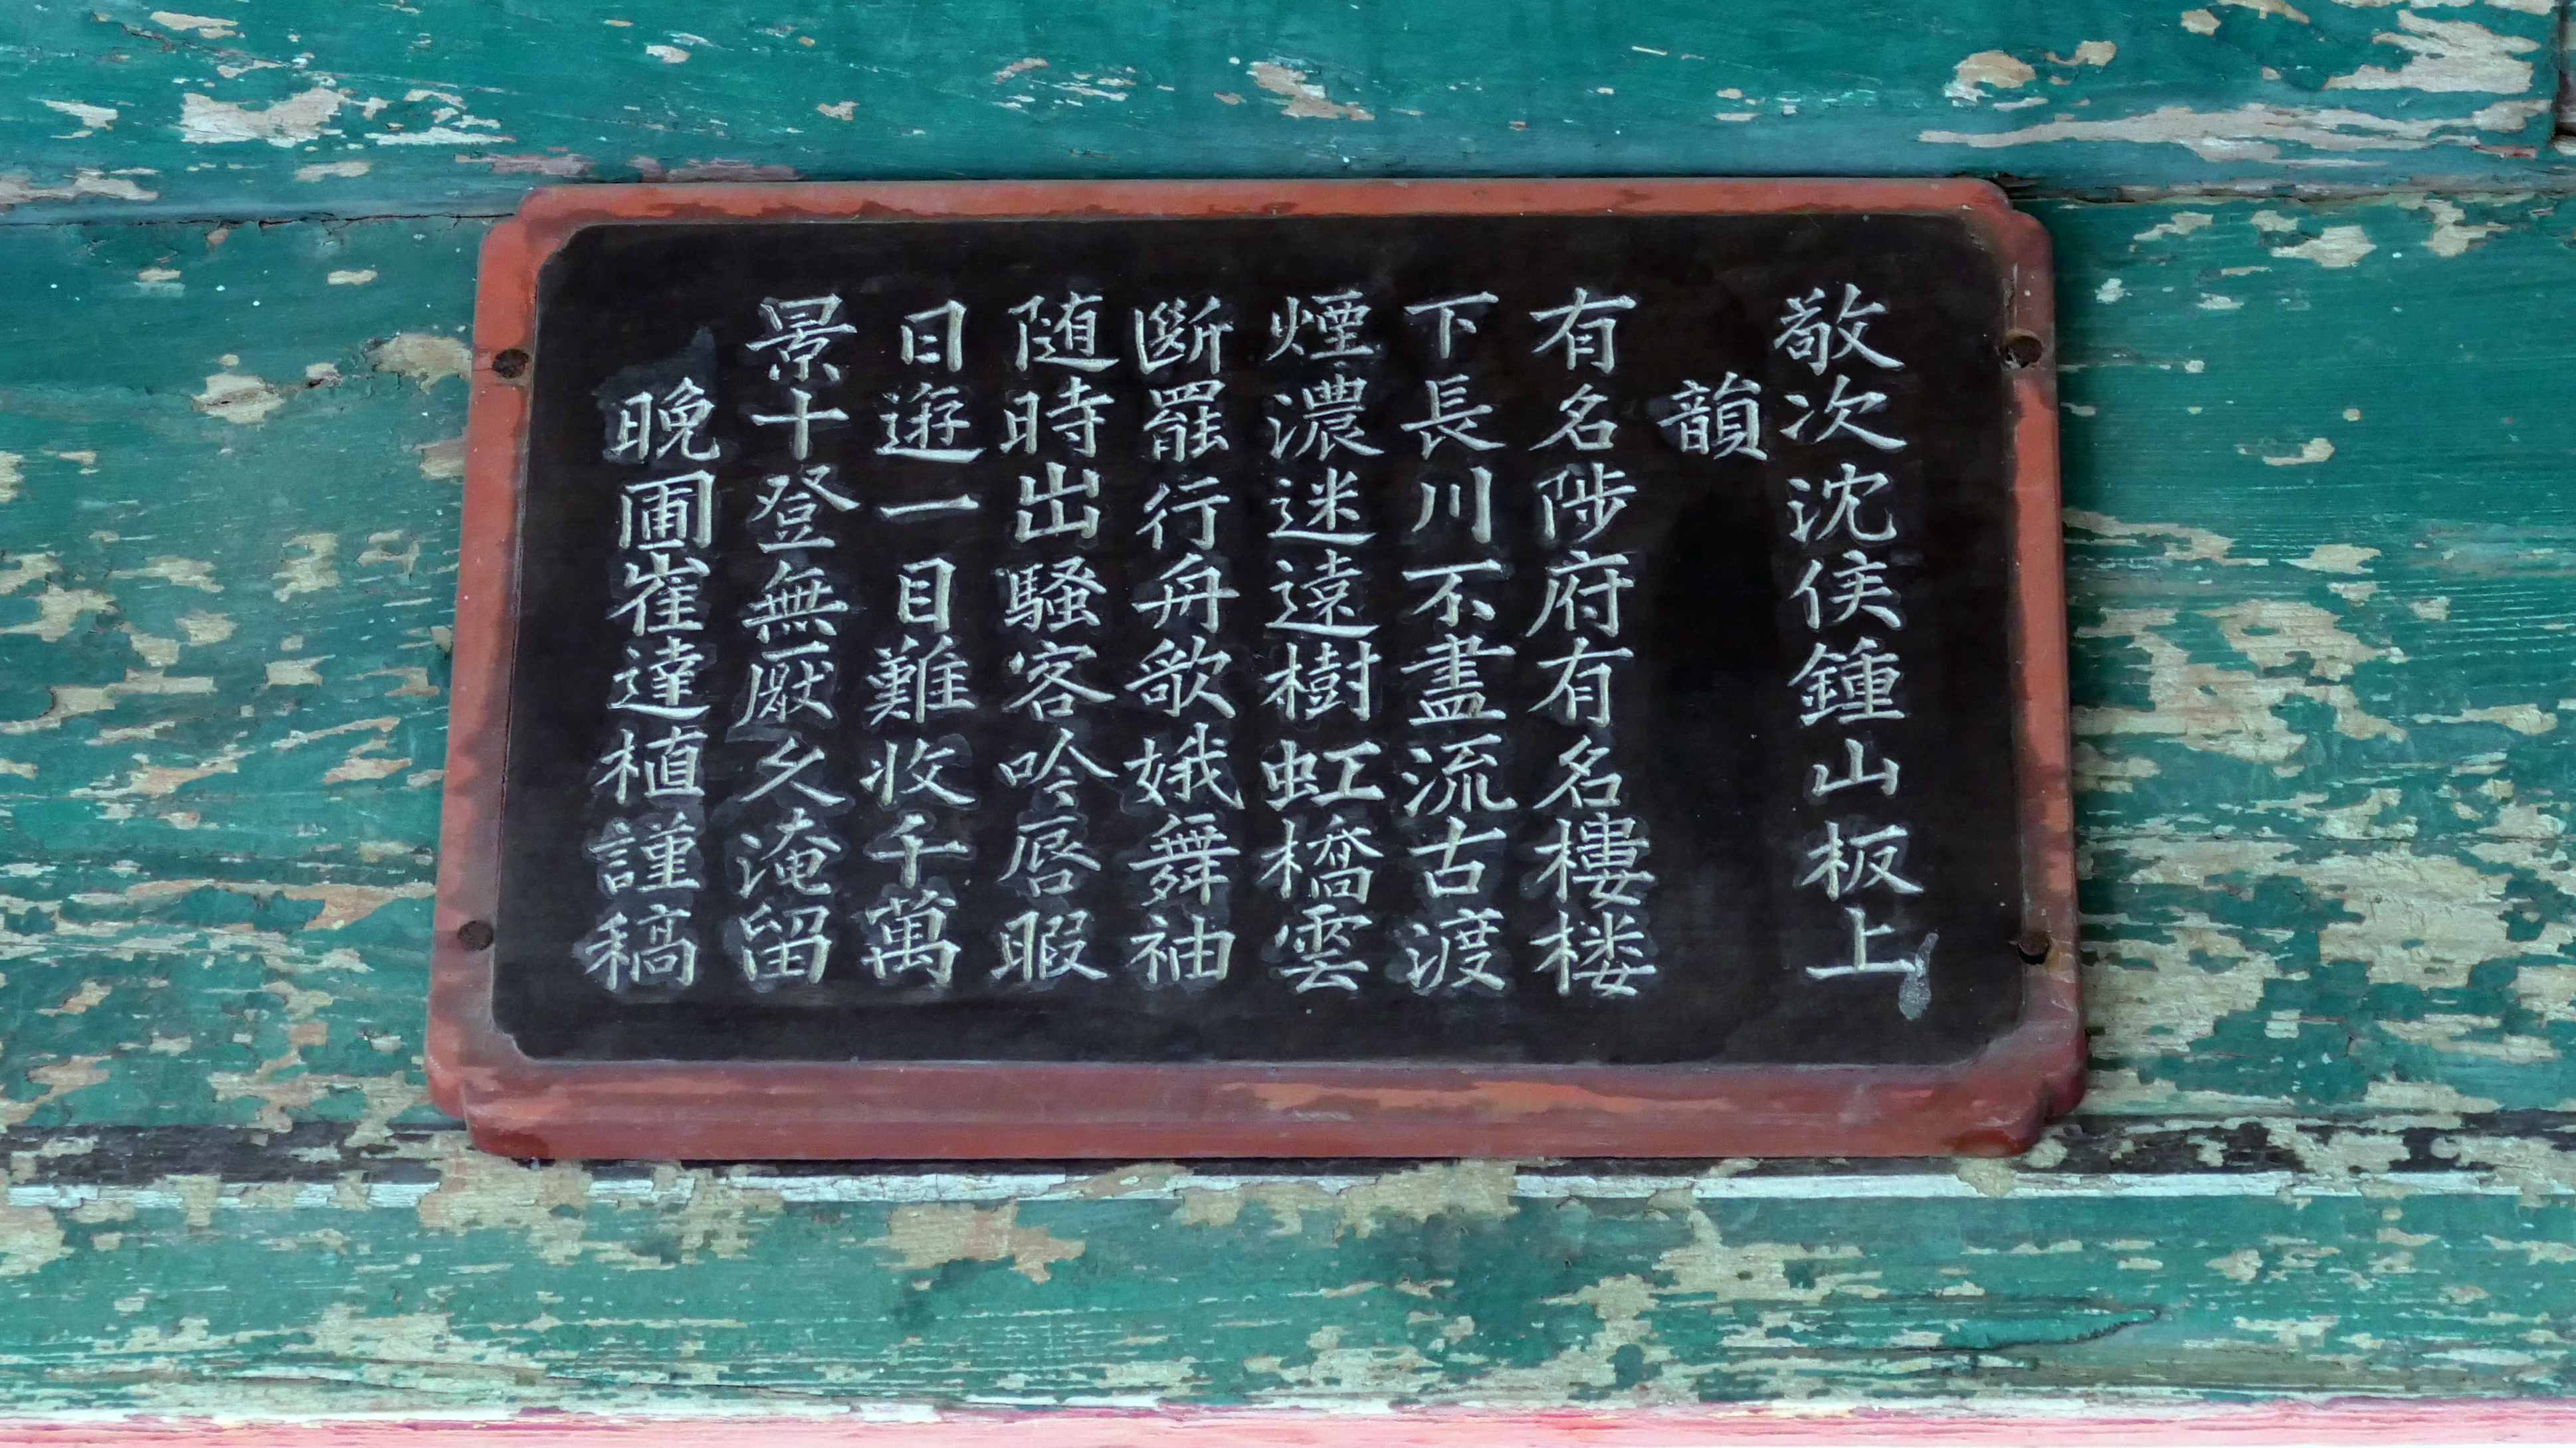 敬次沈侯鍾山板上
韻
有名陟府有名樓楼
下長川不盡流古渡
煙濃迷遠樹虹橋雲
斷罷行舟歌娥舞袖
随時出騷客吟唇暇
日遊一目難收千萬
景十登無厭久淹留
晚圃崔達植謹稿